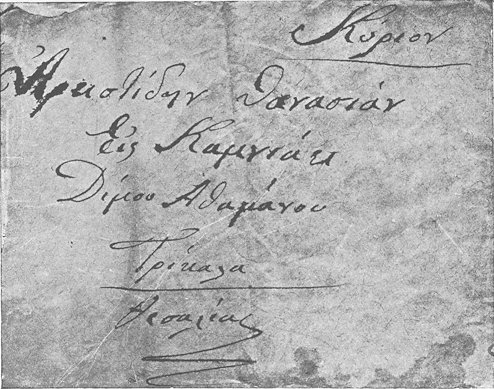 Κύριον
Ἀριστίδην Θανασιάν
Εἰς Καμνιάϊ
Δίμου Ἀθαμάνου
Τρίκαλα
Θεσαλίας